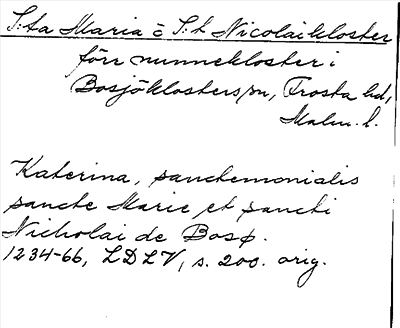 S:ta Maria o S:t Nicolai kloster
förr nunnekloster i
Bosjöklosters sn, Frosta hd,
Malm. l.
Katerina, sanctemonialis
sancte Marie et sancti
Nicholai de Bosø.
1234-66, LDLV, s. 200. orig.